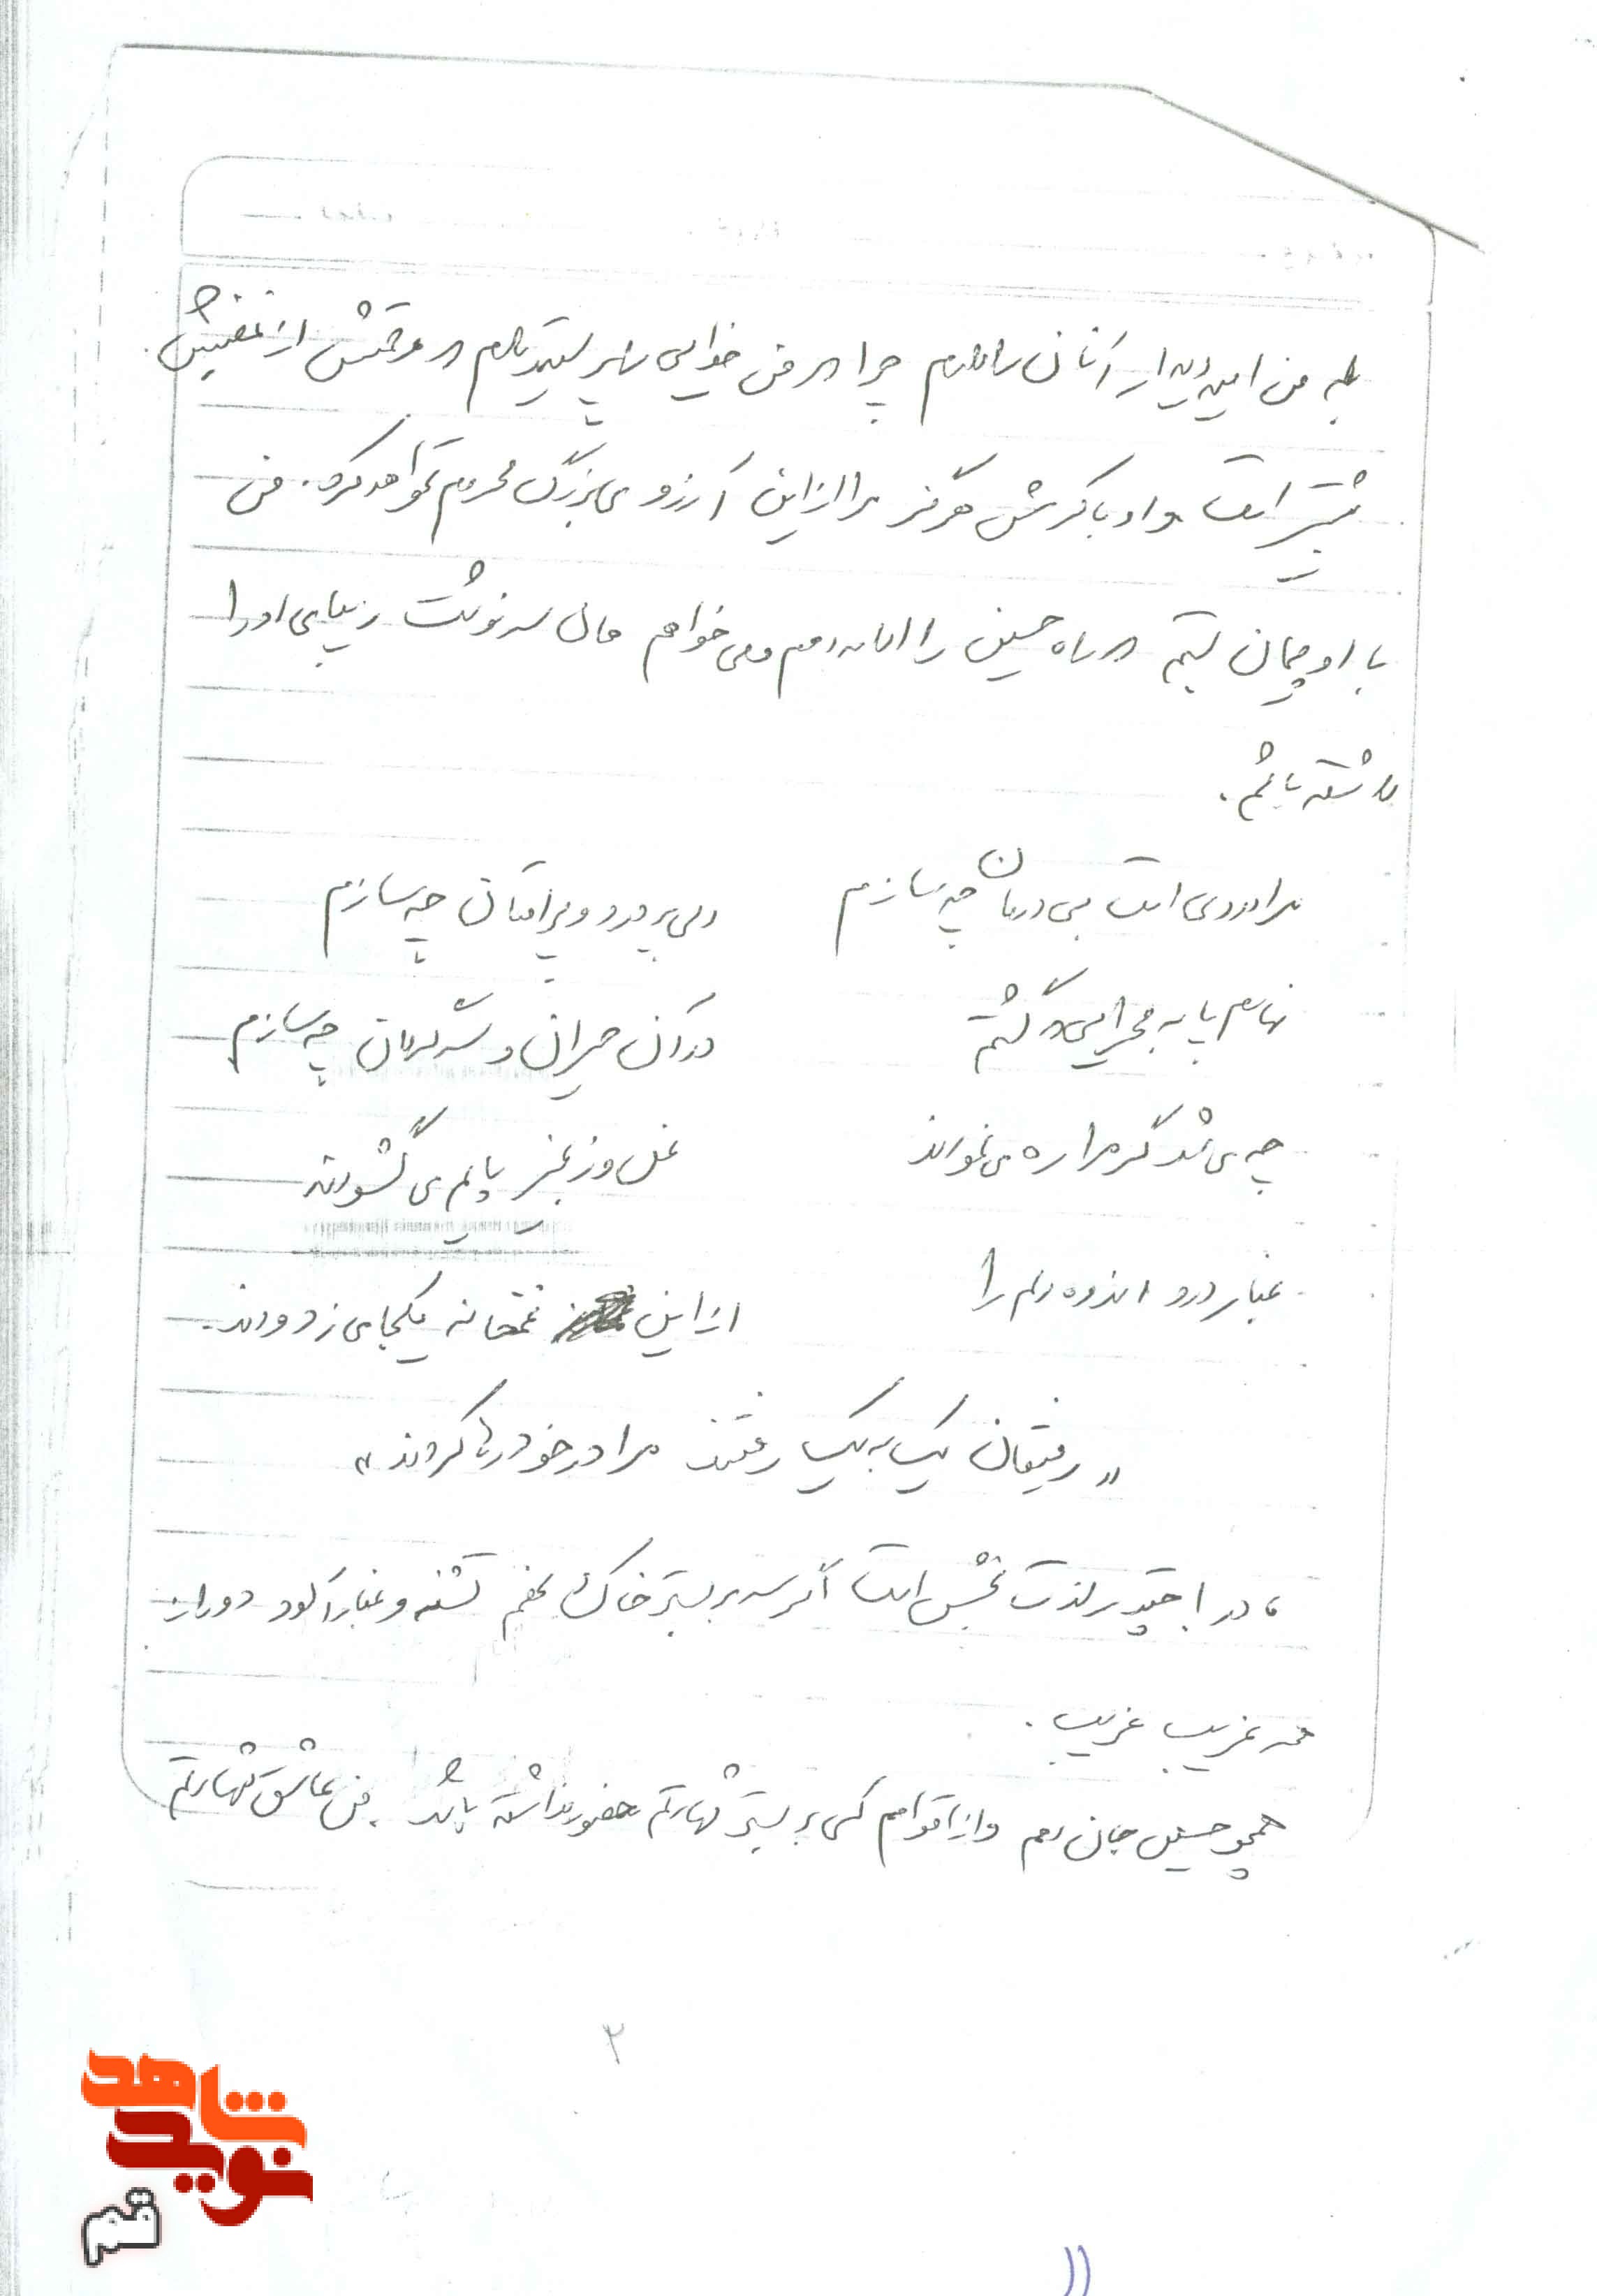 بله من امید دیدار آنان را دارم چرا که من خدایی را می پرستم که رحمتش از غضبش
بیشتر است و او با کرمش هرگز مرا از این آرزوی بزرگ محروم نخواهد کرد. من
با او پیمان بستم که راه حسین را ادامه دهم و می خواهم همان سرنوشت زیبای او را
داشته باشم.
مرا دردی است بی درمان چه سازم    دلی پر درد و پر افغان چه سازم
نهادم پا به مجرایی و گشتم    در آن حیران و سرگردان چه سازم
چه می شد گر مرا ره می نمودند    غل و زنجیر پایم می گشودند
غبار درد و اندوه دلم را    از این غمخانه یکجا می زدودند.
«رفیقان یک به یک رفتند مرا در خود رها کردند»
مادر! چقدر لذت بخش است اگر سر بر بستر خاک نهم تشنه و غبارآلود دور از
هر غریب غریب.
همچو حسین جان دهم و از اقوامم کسی بر بستر شهادتم حضور نداشته باشد. من عاشق شهادتم
۲
شاهد
نوید
قم
۱۱